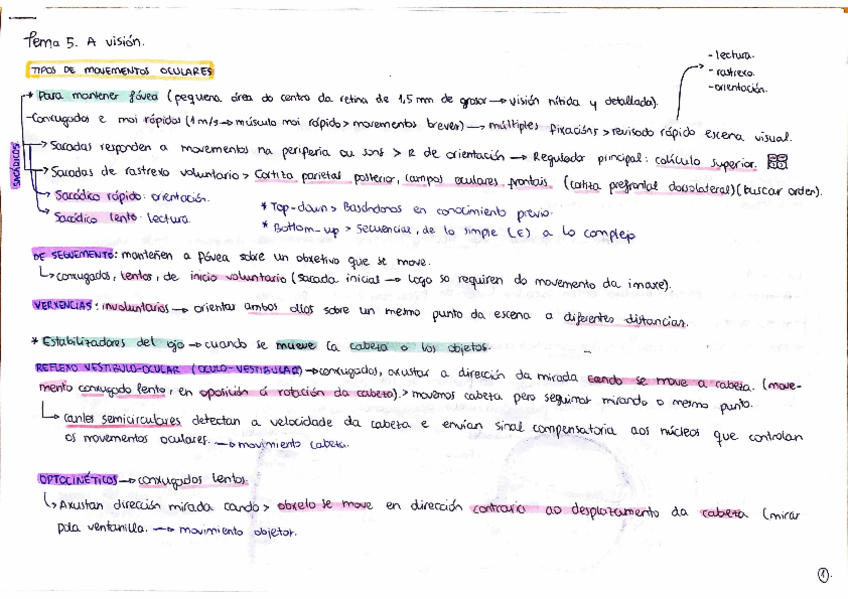 Tema 5. A visión.
- lectura.
- rastrexo.
- orientación.
TIPOS DE MOVEMENTOS OCULARES
* Para manter fóvea (pequena área do centro da retina de 1,5 mm de grosor → visión nítida y detallada).
- Conxugados e moi rápidos (1 m/s → músculo moi rápido > movementos breves) → múltiples fixacións > revisado rápido escena visual.
SACÁDICOS
> Sacadas responden a movementos na periferia ou sons > R de orientación → Regulador principal: colículo superior.
> Sacadas de rastrexo voluntario > Cortiza parietal posterior, campos oculares frontais (cortiza prefrontal dorsolateral) (buscar orden).
> Sacádico rápido: orientación.
> Sacádico lento: lectura.
* Top-down > Basándonos en conocimiento previo.
* Bottom-up > Secuencias, de lo simple (E) a lo complejo
DE SEGUEMENTO: manteñen a fóvea sobre un obxetivo que se move.
↳ conxugados, lentos, de inicio voluntario (sacada inicial → logo so requiren do movemento da imaxe).
VERXENCIAS: involuntarios → orientar ambos ollos sobre un mesmo punto da escena a diferentes distancias.
* Estabilizadores del ojo → cuando se mueve la cabeza o los objetos.
REFLEXO VESTIBULO-OCULAR (OCULO-VESTIBULAR) → conxugados, axustar a dirección da mirada cando se move a cabeza. (move-
mento conxugado lento, en oposición á rotación da cabeza). > movemos cabeza pero seguimos mirando o mesmo punto.
↳ canles semicirculares detectan a velocidade da cabeza e envían sinal compensatoria aos núcleos que controlan
os movementos oculares. → movimiento cabeza.
OPTOCINÉTICOS → conxugados lentos.
↳ Axustan dirección mirada cando > obxeto se move en dirección contrario ao desplazamento da cabeza (mirar
pola ventanilla. → movimiento objetos.
1.